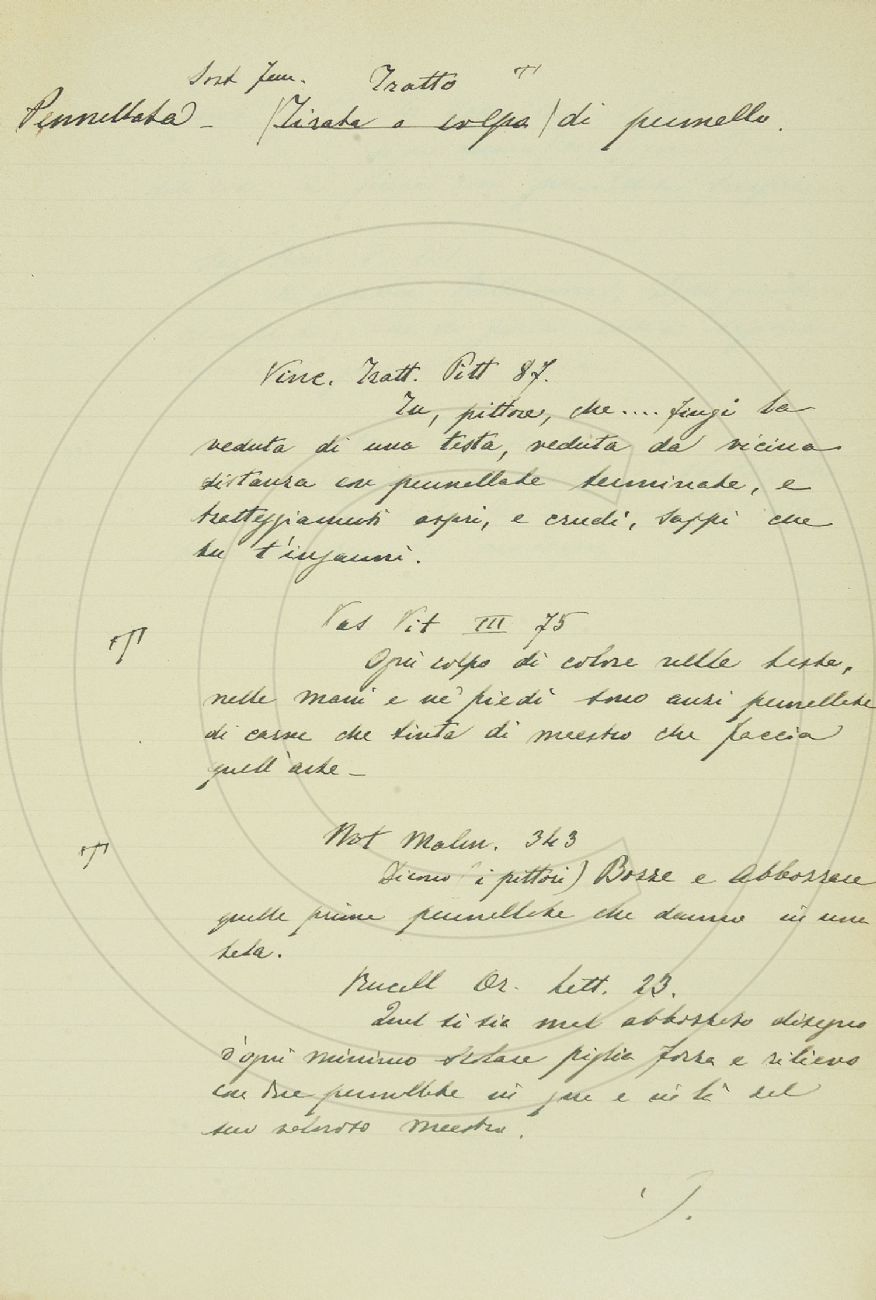 Sost fem. Tratto T
Pennellata - (Tirata o colpo) di pennello.
Vinc. Tratt. Pitt 87.
Tu, pittore, che .... fingi la
veduta di una testa, veduta da vicina
distanza con pennellate terminate, e
tratteggiamenti aspri, e crudi, sappi che
tu t'inganni.
T
Vas Vit III 75
Ogni colpo di colore nelle teste,
nelle mani e ne' piedi sono anzi pennellate
di carne che tinta di maestro che faccia
quell'arte -
T
Not Malm. 343
Dicono (i pittori) Bozze e Abbozzare
quelle prime pennellate che danno in una
tela.
Rucell Or. Lett. 23.
Qual si sia mal abbozzato disegno
d'ogni minimo scolare piglia forza e rilievo
con due pennellate in qua e in là del
suo valoroso maestro.